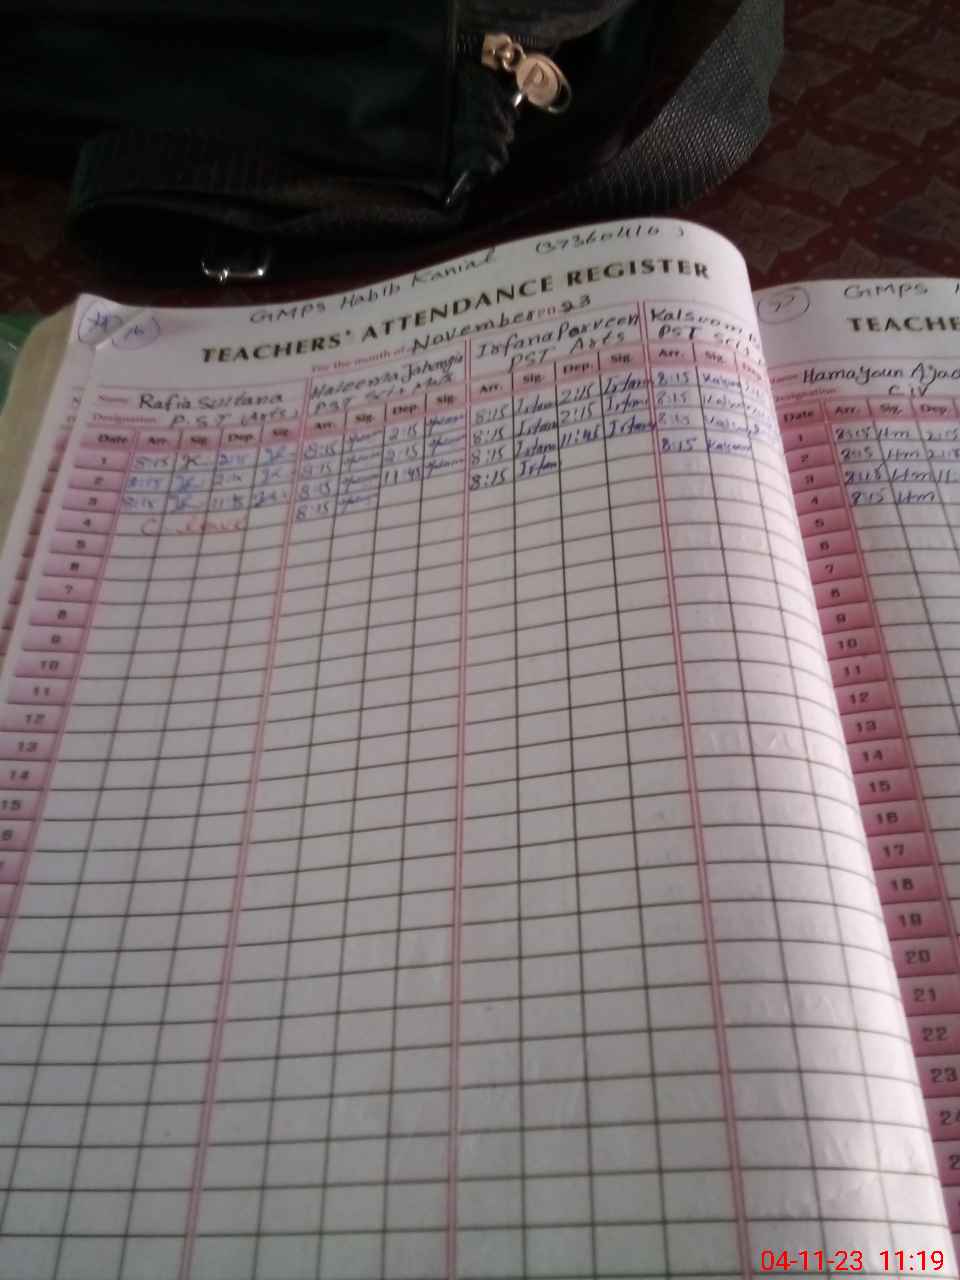 P
GMPS Habib Kanial (37360410)
TEACHERS' ATTENDANCE REGISTER
For the month of November 2023
Name Rafia Sultana Haleema Jahangir Irfana Parveen
Designation P.S.T (Arts) PST Sci. Math PST Arts PST Sci.
Date Arr. Sig. Dep. Sig. Arr. Sig. Dep. Sig. Arr. Sig. Dep. Sig. Arr. Sig. Dep.
1 8:15 2:15 8:15 2:15 8:15 Irfana 2:15 Irfana 8:15
2 8:15 2:15 8:15 2:15 8:15 Irfana 2:15 Irfana 8:15
3 8:15 11:45 8:15 11:45 8:15 Irfana 11:45 Irfana 8:15
4 C leave 8:15 8:15 Irfan 8:15 Kalsoom
5
6
7
8
9
10
11
12
13
14
15
GMPS
TEACHE
Name Hamayoun
Designation
Date Arr. Sig. Dep.
1 8:15 Hm 2:15
2 8:15 Hm 2:15
3 8:15 Hm 11:
4 8:15 Hm
5
6
7
8
9
10
11
12
13
14
15
16
17
18
19
20
21
22
23
04-11-23 11:19